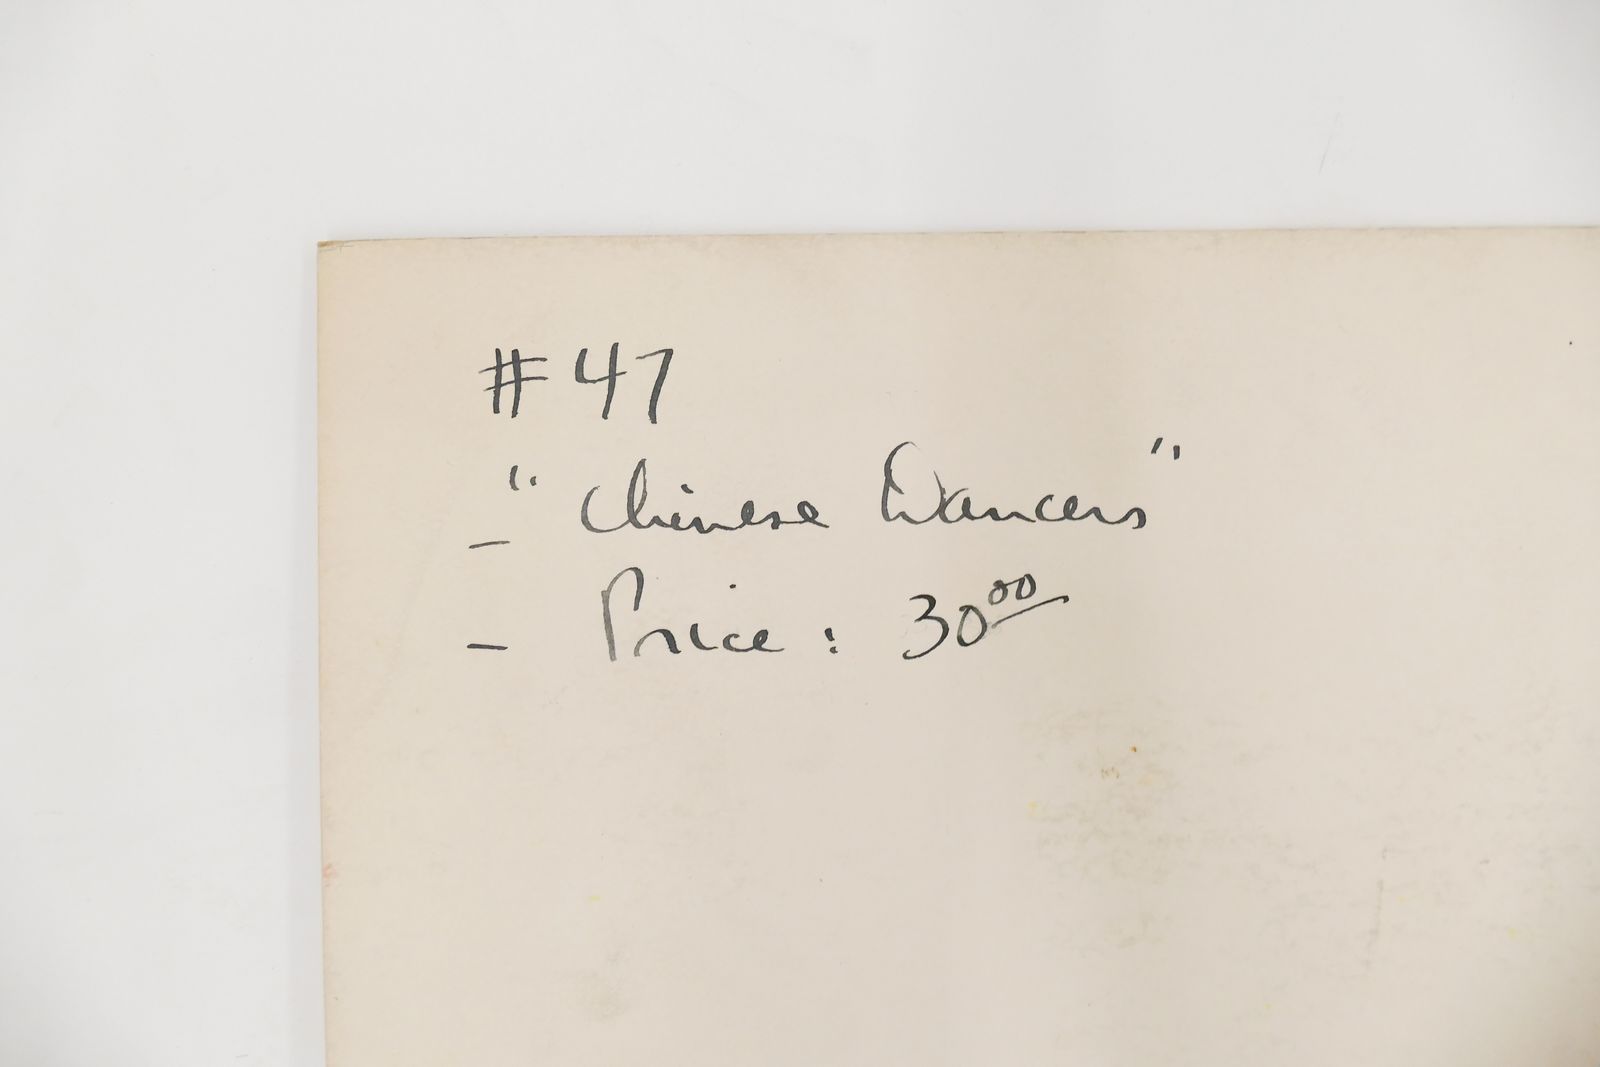 #47
- "Chinese Dancers"
- Price: 30.00